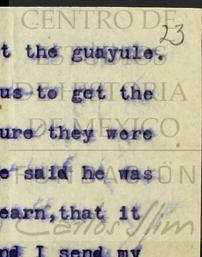 CENTRO DE
23
t the guayule.
ESTUDIOS
us to get the
DE HISTORIA
ure they were
DE MEXICO
e said he was
FUNDACIÓN
earn, that it
Carlos Slim
nd I send my